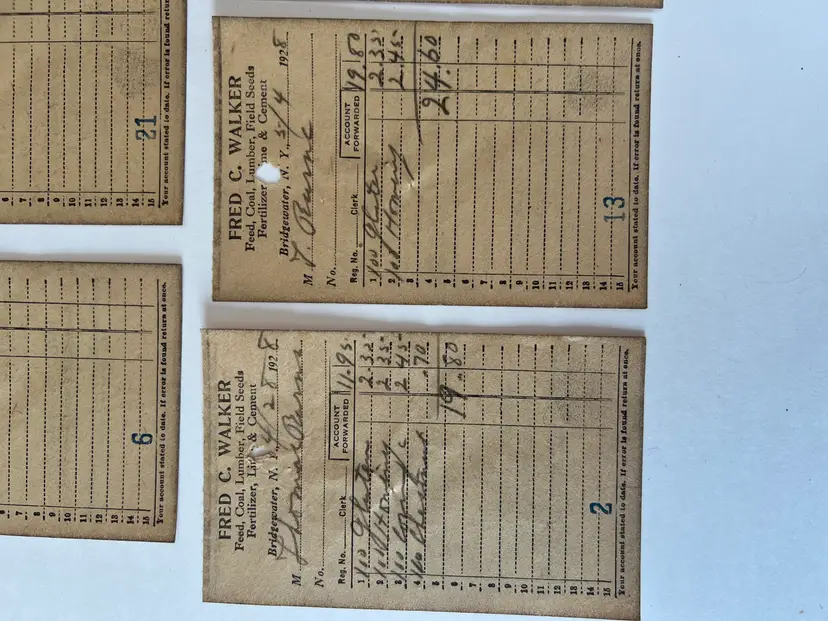 FRED C. WALKER
Feed, Coal, Lumber, Field Seeds
Fertilizer, Lime & Cement
Bridgewater, N. Y., 5/4 1928
M T. Burns
No.
Reg. No. Clerk ACCOUNT FORWARDED 19.80
1 100 Gluten 2.35
2 100 Hominy 2.45
3
4 24.60
5
6
7
8
9
10
11
12
13
14
15
13
Your account stated to date. If error is found return at once.
FRED C. WALKER
Feed, Coal, Lumber, Field Seeds
Fertilizer, Lime & Cement
Bridgewater, N. Y., 4/28 1928
M Thomas Burns
No.
Reg. No. Clerk ACCOUNT FORWARDED 11.95
1 100 Gluten 2.35
2 100 Hominy 2.35
3 100 2.45
4 100 Chestnut .70
5 19.80
6
7
8
9
10
11
12
13
14
15
2
Your account stated to date. If error is found return at once.
6
7
8
9
10
11
12
13
14
15
21
Your account stated to date. If error is found return
8
9
10
11
12
13
14
15
6
Your account stated to date. If error is found return at once.